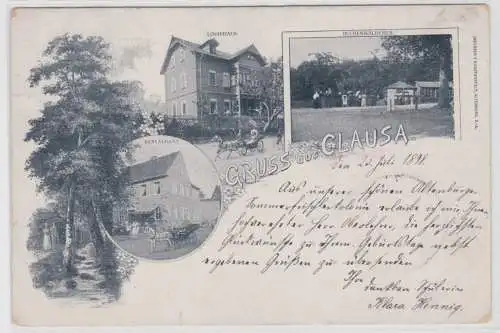 LOGIRHAUS
RESTAURANT
GRUSS aus GLAUSA
den 23. Juli 1898.
Aus unserer schönen Altenburger
Sommerfrischcolonie erlaube ich mir Ihnen
hochverehrter Herr Oberlehrer, die herzlichsten
Glückwünsche zu Ihrem Geburtstage nebst
ergebenen Grüßen zu übersenden!
Ihre
dankbare Schülerin
Klara Hennig.